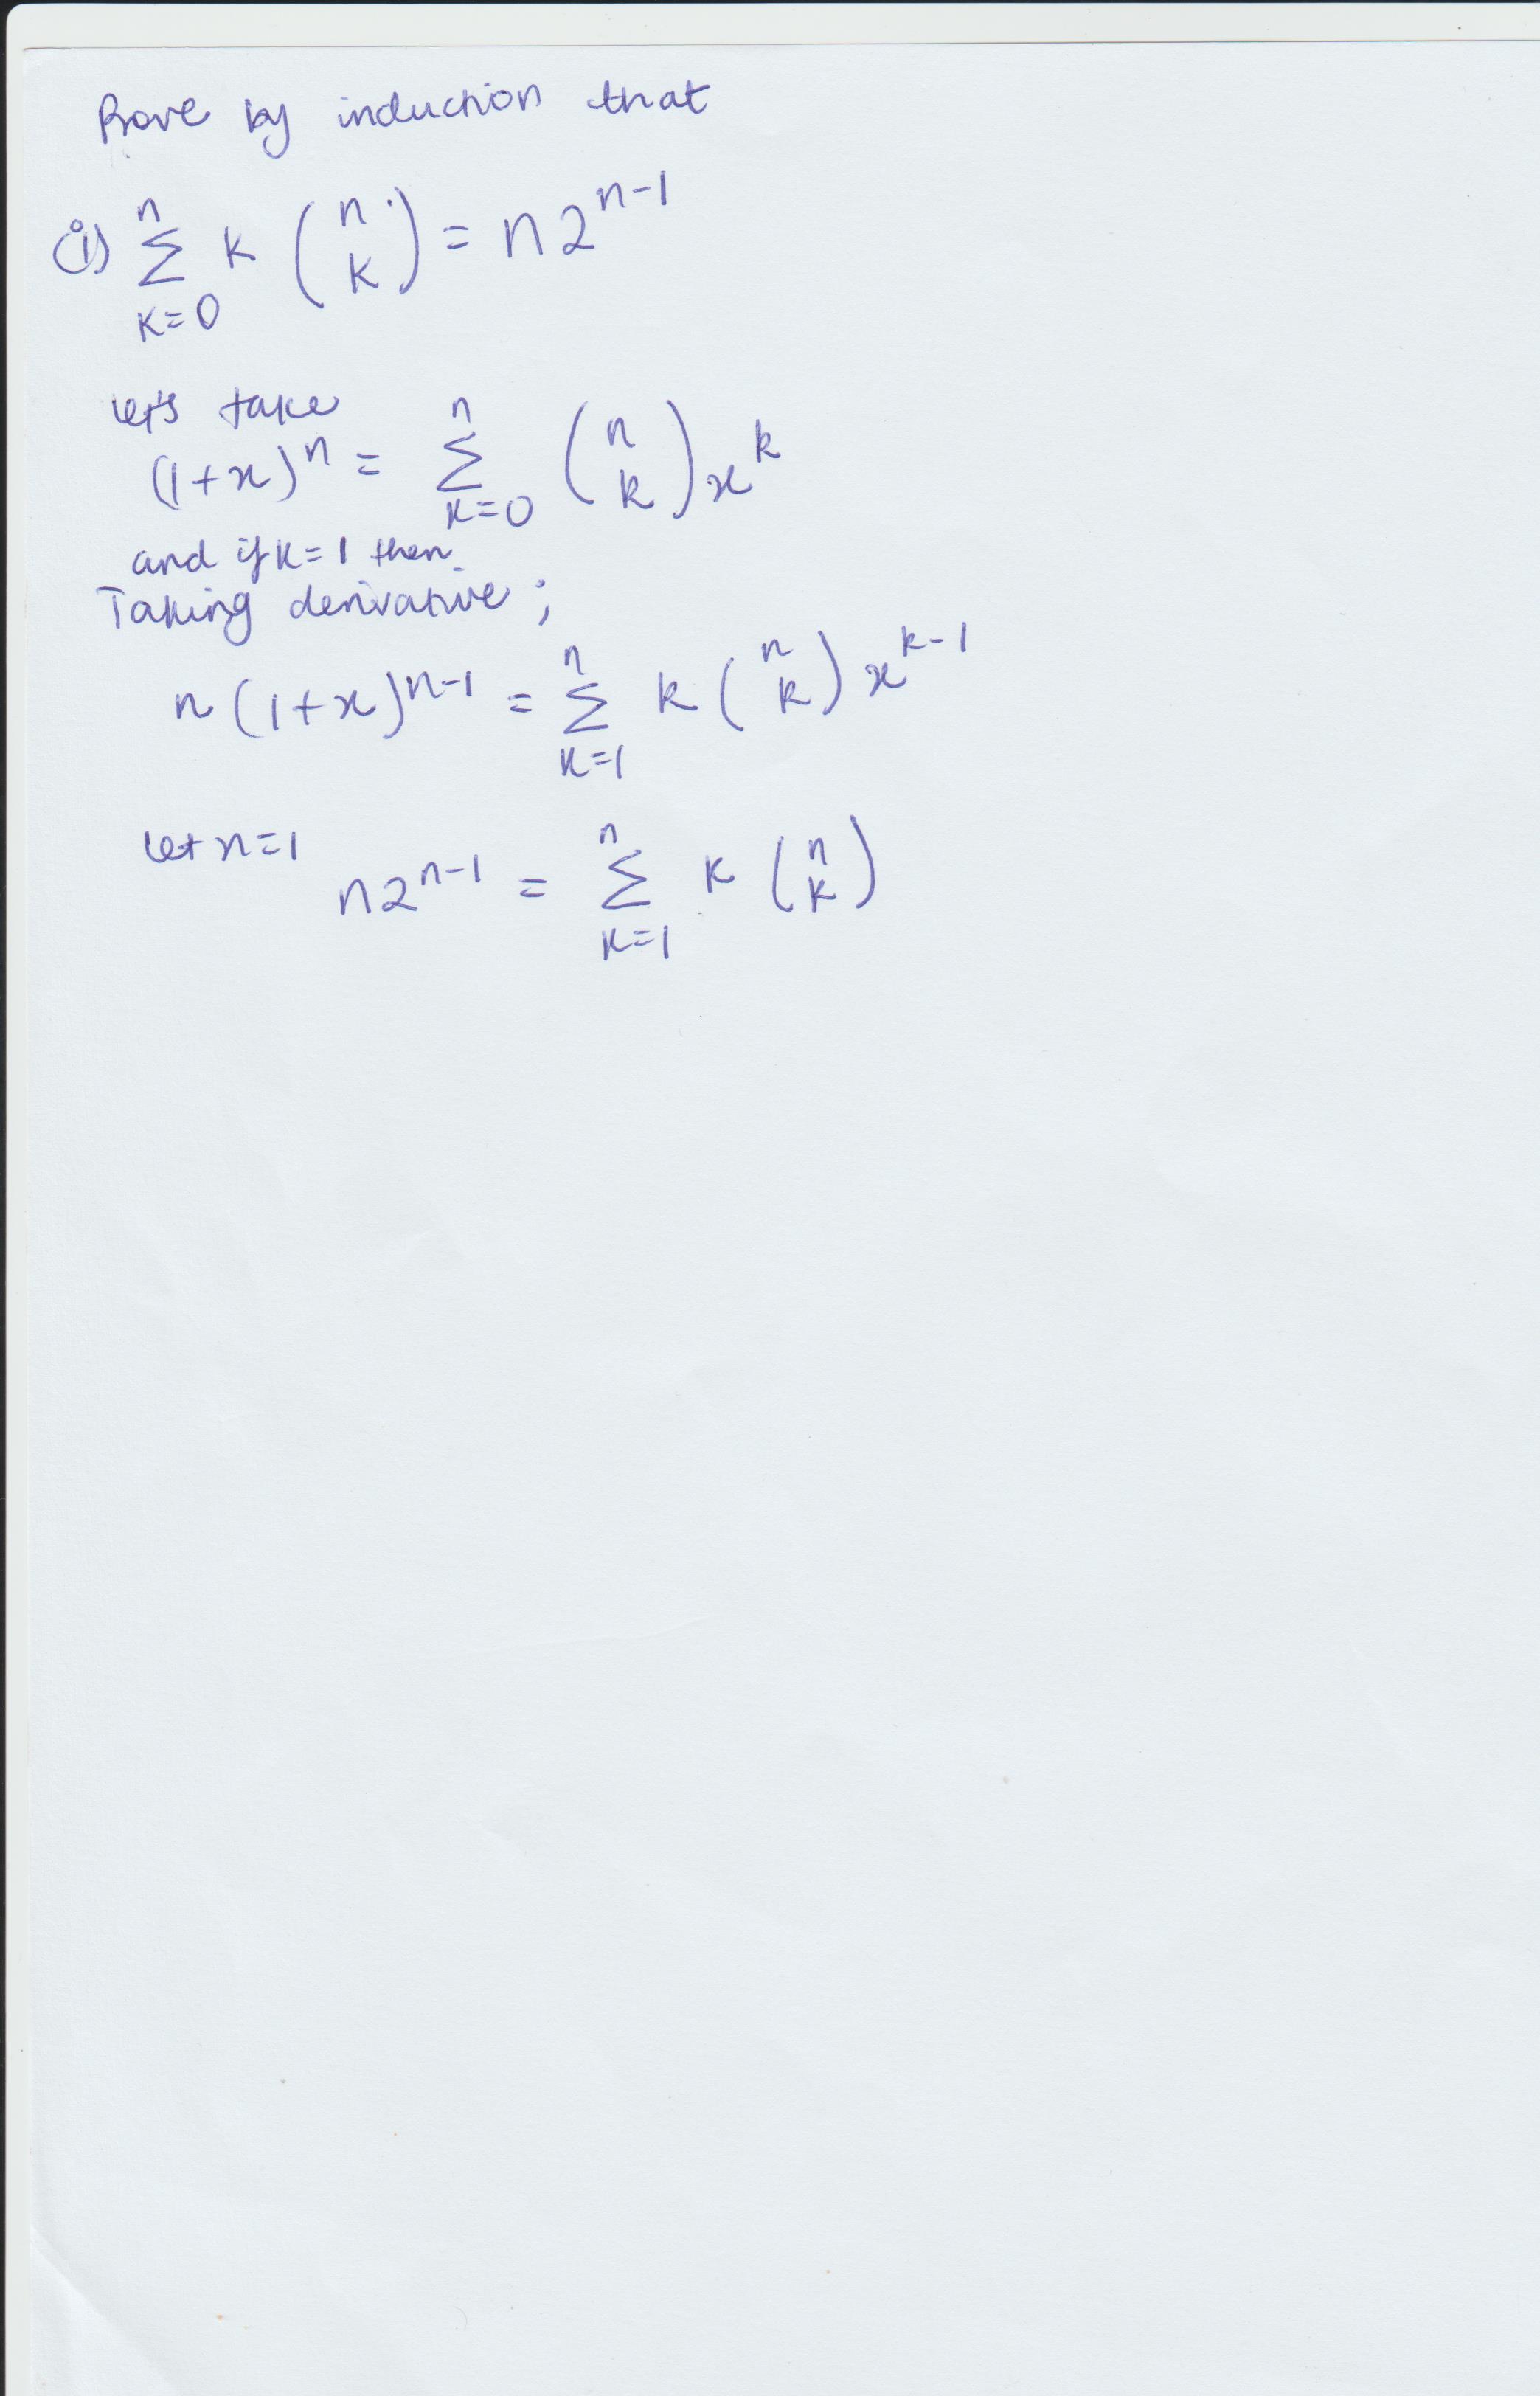 Prove by induction that
(i) n∑k=0 k (n k) = n2^(n-1)
let's take
(1+x)^n = n∑k=0 (n k) x^k
and if k=1 then
Taking derivative;
n(1+x)^(n-1) = n∑k=1 k (n k) x^(k-1)
let x=1
n2^(n-1) = n∑k=1 k (n k)